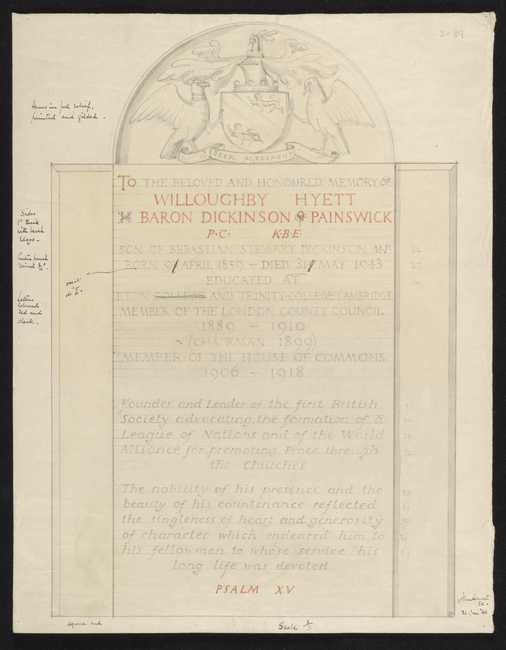 Arms in full relief,
painted and gilded.
SEEK AGREEMENT
TO THE BELOVED AND HONOURED MEMORY OF
WILLOUGHBY HYETT
BARON DICKINSON OF PAINSWICK
P·C· K·B·E
SON OF SEBASTIAN STEWART DICKINSON M·P·
BORN 9 APRIL 1859 – DIED 31 MAY 1943
EDUCATED AT
ETON COLLEGE AND TRINITY COLLEGE CAMBRIDGE
MEMBER OF THE LONDON COUNTY COUNCIL
1889 – 1910
(CHAIRMAN 1899)
MEMBER OF THE HOUSE OF COMMONS
1906 – 1918
Founder and Leader of the first British
Society advocating the formation of a
League of Nations and of the World
Alliance for promoting Peace through
the Churches
The nobility of his presence and the
beauty of his countenance reflected
the singleness of heart and generosity
of character which endeared him to
his fellowmen to whose service his
long life was devoted
PSALM XV
Letters
red and
Scale